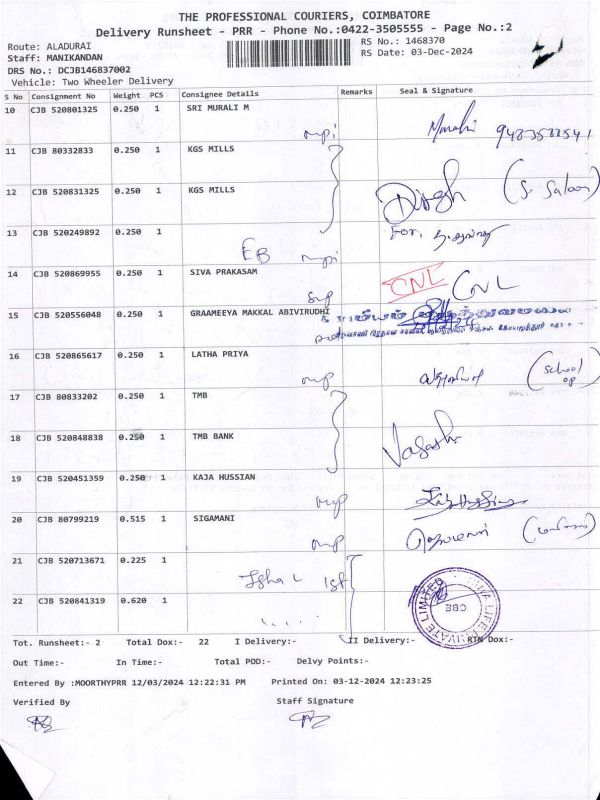 THE PROFESSIONAL COURIERS, COIMBATORE
Delivery Runsheet - PRR - Phone No.:0422-3505555 - Page No.:2
Route: ALADURAI
RS No.: 1468370
Staff: MANIKANDAN
RS Date: 03-Dec-2024
DRS No.: DCJB146837002
Vehicle: Two Wheeler Delivery
S No Consignment No Weight PCS Consignee Details Remarks Seal & Signature
10 CJB 520801325 0.250 1 SRI MURALI M
Murali
11 CJB 80332833 0.250 1 KGS MILLS
12 CJB 520831325 0.250 1 KGS MILLS
Dinesh
13 CJB 520249892 0.250 1
For,
EB
14 CJB 520869955 0.250 1 SIVA PRAKASAM
CNL CNL
15 CJB 520556048 0.250 1 GRAAMEEYA MAKKAL ABIVIRUDHI
16 CJB 520865617 0.250 1 LATHA PRIYA
(School
17 CJB 80833202 0.250 1 TMB
18 CJB 520848838 0.250 1 TMB BANK
19 CJB 520451359 0.250 1 KAJA HUSSIAN
20 CJB 80799219 0.515 1 SIGAMANI
21 CJB 520713671 0.225 1
Isha L
22 CJB 520841319 0.620 1
LIFE PRIVATE LIMITED
CBE
Tot. Runsheet:- 2 Total Dox:- 22 I Delivery:- II Delivery:- RTN Dox:-
Out Time:- In Time:- Total POD:- Delvy Points:-
Entered By :MOORTHYPRR 12/03/2024 12:22:31 PM Printed On: 03-12-2024 12:23:25
Verified By Staff Signature